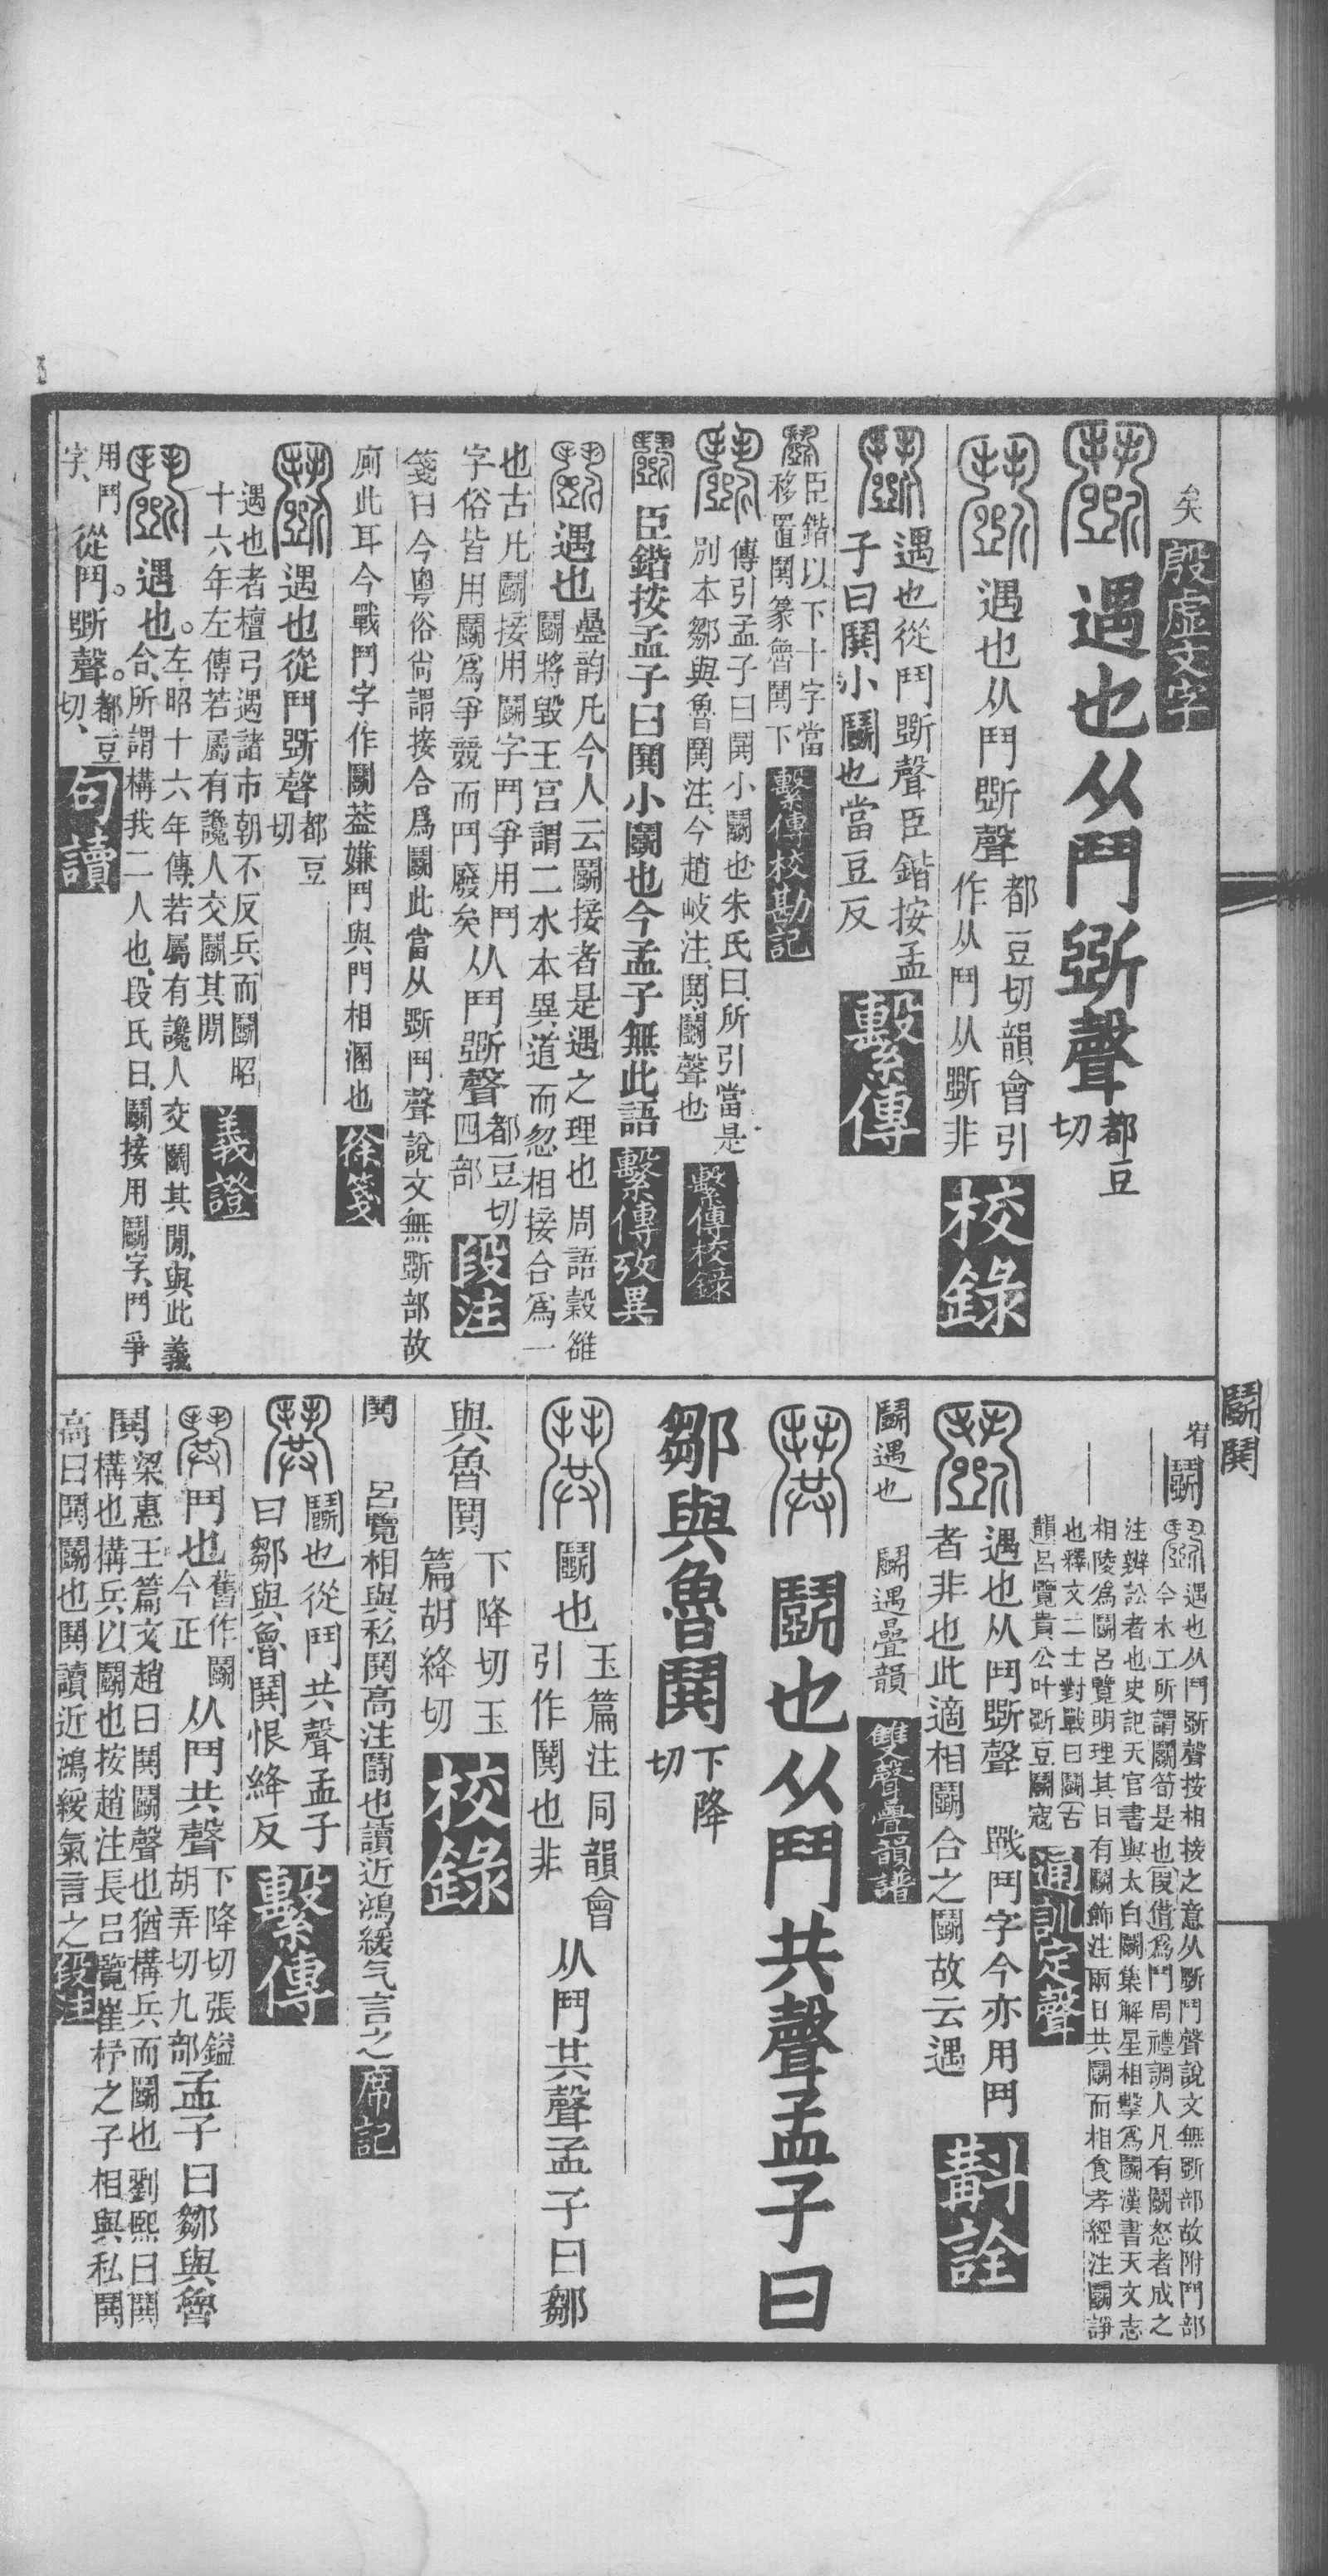 矣 殷虛文字
鬭 遇也从鬥斲聲 都豆切
鬭 遇也从鬥斲聲 都豆切韻會引作从鬥从斲非 校錄
鬭 遇也從鬥斲聲臣鍇按孟子曰鬨小鬭也當豆反 繫傳
鬭 臣鍇以下十字當移置鬨篆魯鬨下 繫傳校勘記
鬭 傳引孟子曰鬨小鬭也朱氏曰所引當是別本鄒與魯鬨注今趙岐注鬨鬭聲也 繫傳校錄
鬭 臣鍇按孟子曰鬨小鬭也今孟子無此語 繫傳攷異
鬭 遇也 疊韵凡今人云鬭接者是遇之理也周語穀雒鬭將毀王宮謂二水本異道而忽相接合爲一
也古凡鬭接用鬭字鬥爭用鬥字俗皆用鬭爲爭競而鬥廢矣 从鬥斲聲 都豆切四部 段注
箋曰今粵俗尙謂接合爲鬭此當从斲鬥聲說文無斲部故
廁此耳今戰鬥字作鬭葢嫌鬥與門相溷也 徐箋
鬭 遇也從鬥斲聲 都豆切
遇也者檀弓遇諸市朝不反兵而鬭昭十六年左傳若屬有讒人交鬭其閒 義證
鬭 遇也 左昭十六年傳若屬有讒人交鬭其閒與此義合所謂構我二人也段氏曰鬭接用鬭字鬥爭
用鬥字 從鬥斲聲 都豆切 句讀
鬭鬨
宥 鬭
鬭 遇也从鬥斲聲按相接之意从斲鬥聲說文無斲部故附鬥部今木工所謂鬭筍是也假借爲鬥周禮調人凡有鬭怒者成之
注辨訟者也史記天官書與太白鬭集解星相擊爲鬭漢書天文志相陵爲鬭呂覽明理其日有鬭飾注兩日共鬭而相食孝經注鬭諍
也釋文二士對戰曰鬭古韻呂覽貴公叶斲豆鬭寇 通訓定聲
鬭 遇也从鬥斲聲 戰鬥字今亦用鬥者非也此適相鬭合之鬭故云遇 斠詮
鬭遇也 鬭遇疊韻 雙聲疊韻譜
鬨 鬭也从鬥共聲孟子曰
鄒與魯鬨 下降切
鬨 鬭也 玉篇注同韻會引作鬨也非 从鬥共聲孟子曰鄒
與魯鬨 下降切玉篇胡絳切 校錄
鬨 呂覽相與私鬨高注鬭也讀近鴻緩气言之 席記
鬨 鬭也從鬥共聲孟子曰鄒與魯鬨恨絳反 繫傳
鬨 鬥也 舊作鬭今正 从鬥共聲 下降切張鎰胡弄切九部 孟子曰鄒與魯
鬨 梁惠王篇文趙曰鬨鬭聲也猶構兵而鬭也劉熙曰鬨構也構兵以鬭也按趙注長呂覽崔杼之子相與私鬨
高曰鬨鬭也鬨讀近鴻緩氣言之 段注